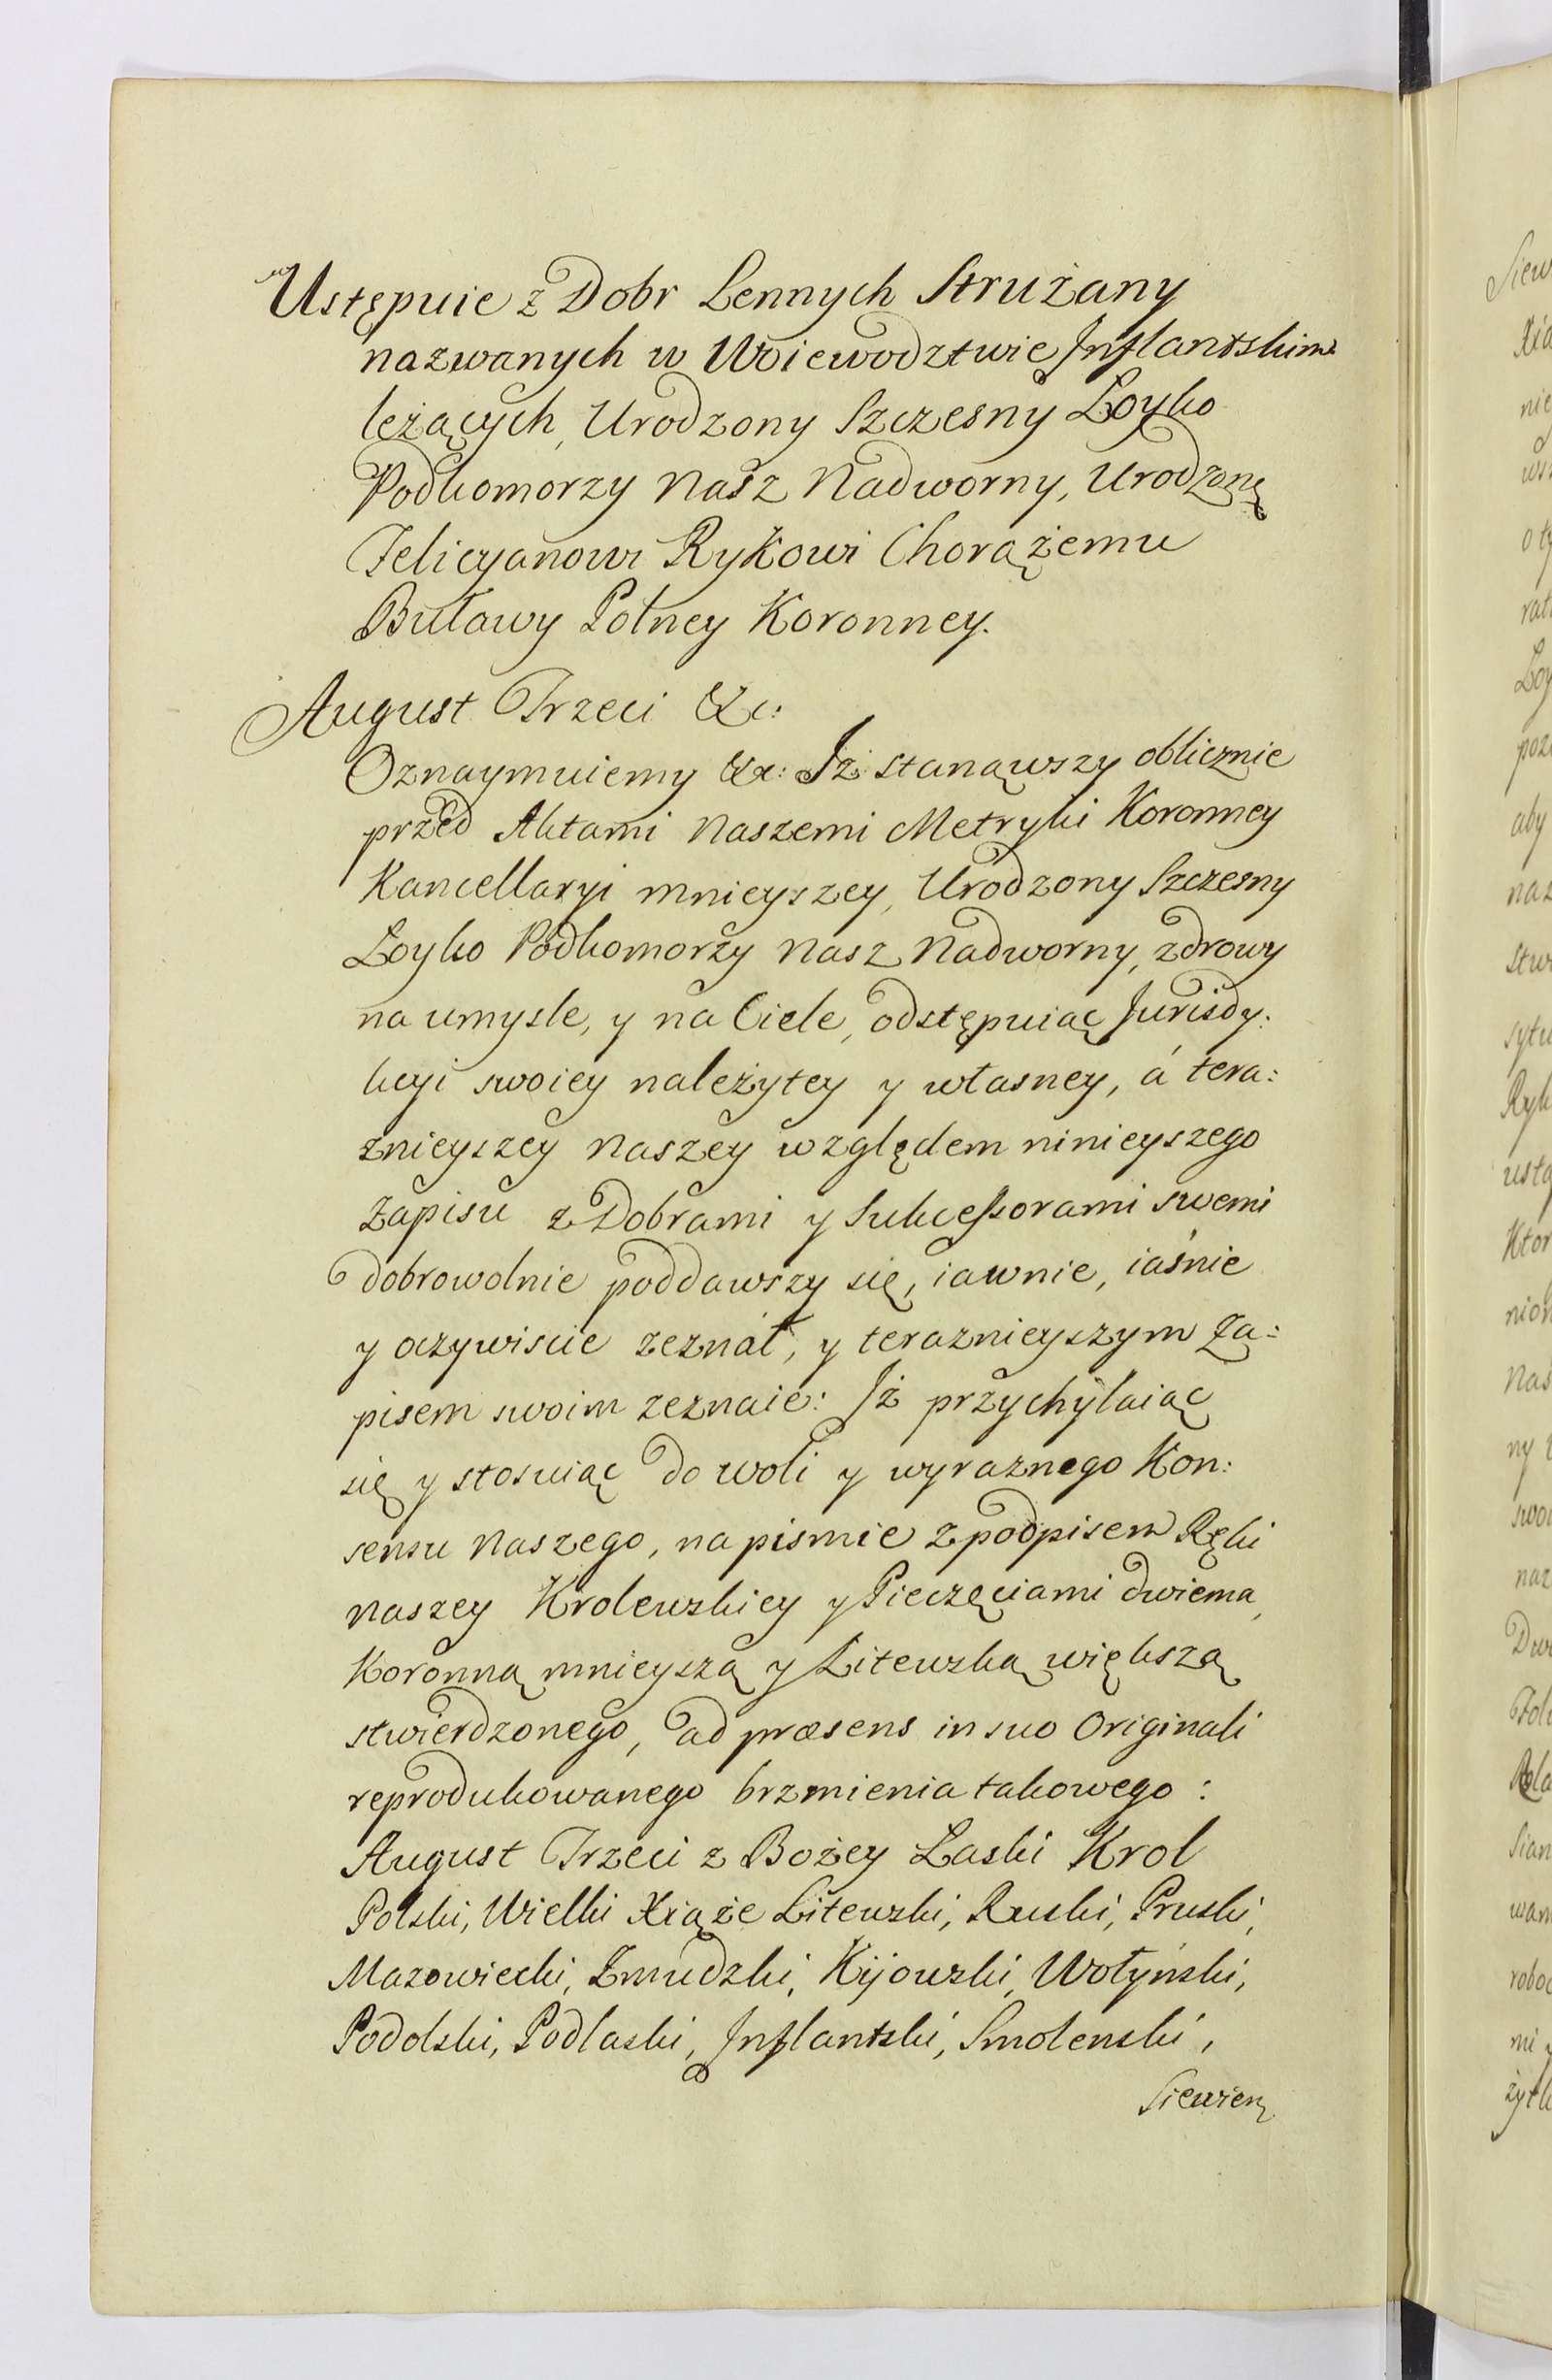 Ustępuie z Dobr Lennych Strużany
nazwanych w Woiewodztwie Inflantskim
leżących, Urodzony Szczesny Łoyko
Podkomorzy Nasz Nadworny, Urodzonę
Felicyanowi Rykowi Chorążemu
Buławy Polney Koronney.
August Trzeci &c:
Oznaymuiemy &c: Iż stanąwszy oblicznie
przed Aktami Naszemi Metryki Koronney
Kancellaryi mnieyszey, Urodzony Szczesny
Łoyko Podkomorzy Nasz Nadworny, zdrowy
na umysle, y na Ciele, odstępuiąc Jurisdy:
kcyi swoiey należytey y własney, á tera:
znieyszey Naszey względem ninieyszego
Zapisu z Dobrami y Sukcessorami swemi
dobrowolnie poddawszy się, iawnie, iaśnie
y oczywiscie zeznał, y teraznieyszym Za:
pisem swoim zeznaie: Iż przychylaiąc
się y stosuiąc do woli y wyraznego Kon:
sensu Naszego, na pismie z podpisem Ręki
Naszey Krolewskiey y Pieczęciami dwiema,
Koronną mnieyszą y Litewską większą
stwierdzonego, ad præsens in suo Originali
reprodukowanego brzmienia takowego:
August Trzeci z Bożey Łaski Krol
Polski, Wielki Xiąże Litewski, Ruski, Pruski,
Mazowiecki, Żmudzki, Kijowski, Wołyński,
Podolski, Podlaski, Inflantski, Smolenski,
Siewier
Siew
Xią
nie
wsz
o ty
rat
Łoy
poz
aby
naz
stw
sytu
Ryk
ustą
Ktor
nion
Nas
ny
swo
naz
Dw
Fol
Rola
sian
wam
robo
mi y
żytk